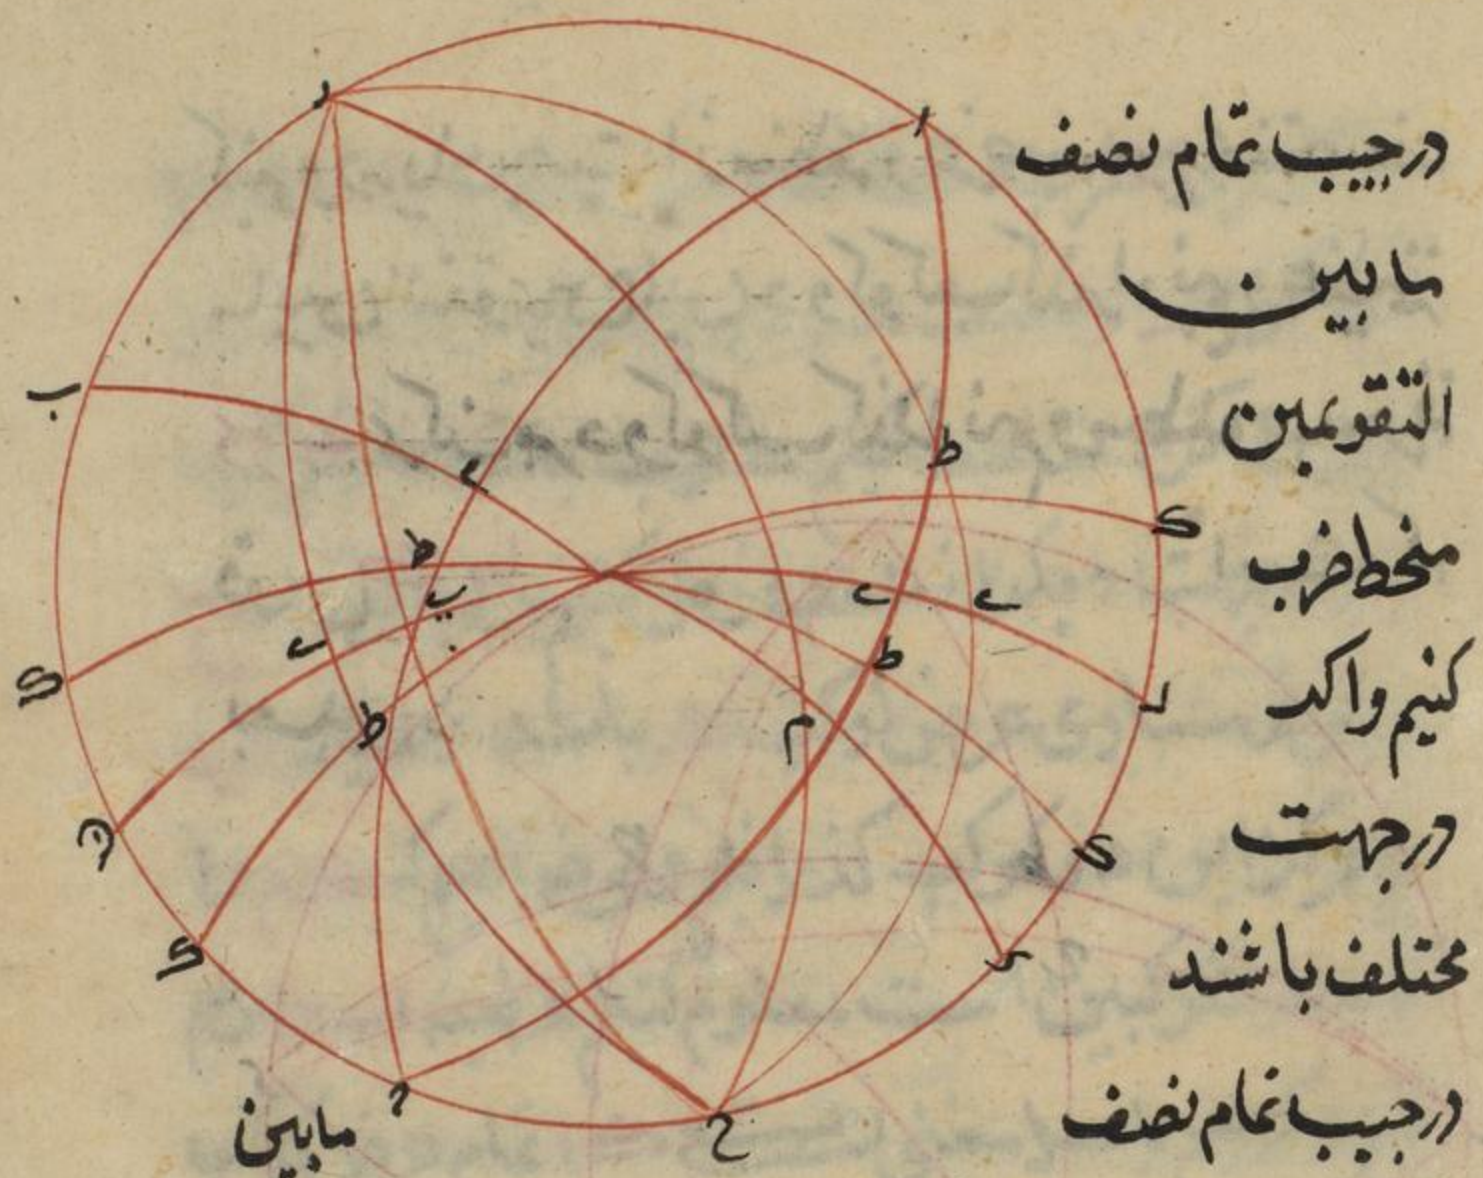 در جیب تمام نصف
مابین
التقویمین
منحط ضرب
کنیم و اکر
در جهت
مختلف باشند
در جیب تمام نصف
مابین
ا
ب
ط
ط
ط
ط
م
ح